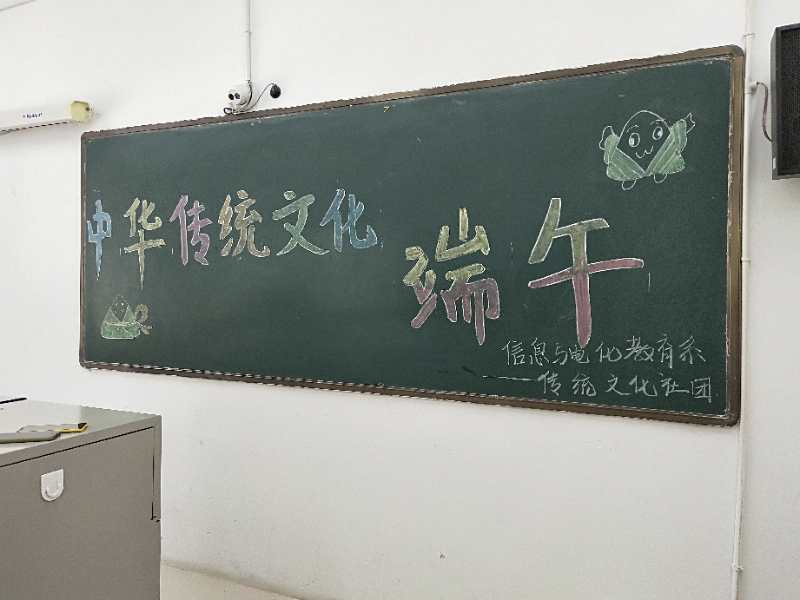 中华传统文化
端午
信息与电化教育系
——传统文化社团